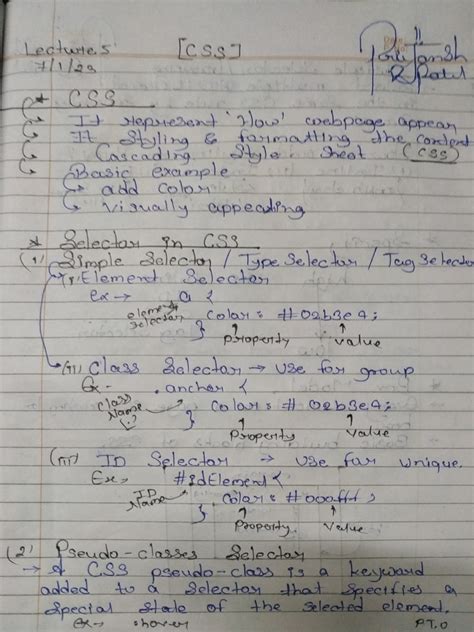 Lecture.5 [CSS]
7/1/23
* CSS
It represent 'How' webpage appear
It Styling & formatting the content
Cascading Style Sheet (CSS)
Basic example
add color
visually appearing
* Selector in CSS
(1) Simple Selector / Type Selector / Tag Selector
(i) Element Selector
ex → a {
element selector color : #02b3e4;
}
Property value
(ii) Class Selector → use for group
Ex - .anchor {
class Name (.) color : #02b3e4;
}
Property Value
(iii) ID Selector → use for unique.
Ex - #idElement {
ID Name color : #000fff;
}
Property. Value
(2) Pseudo-classes Selector
→ A CSS pseudo-class is a keyword
added to a selector that specifies a
special state of the selected element.
ex → :hover P.T.O